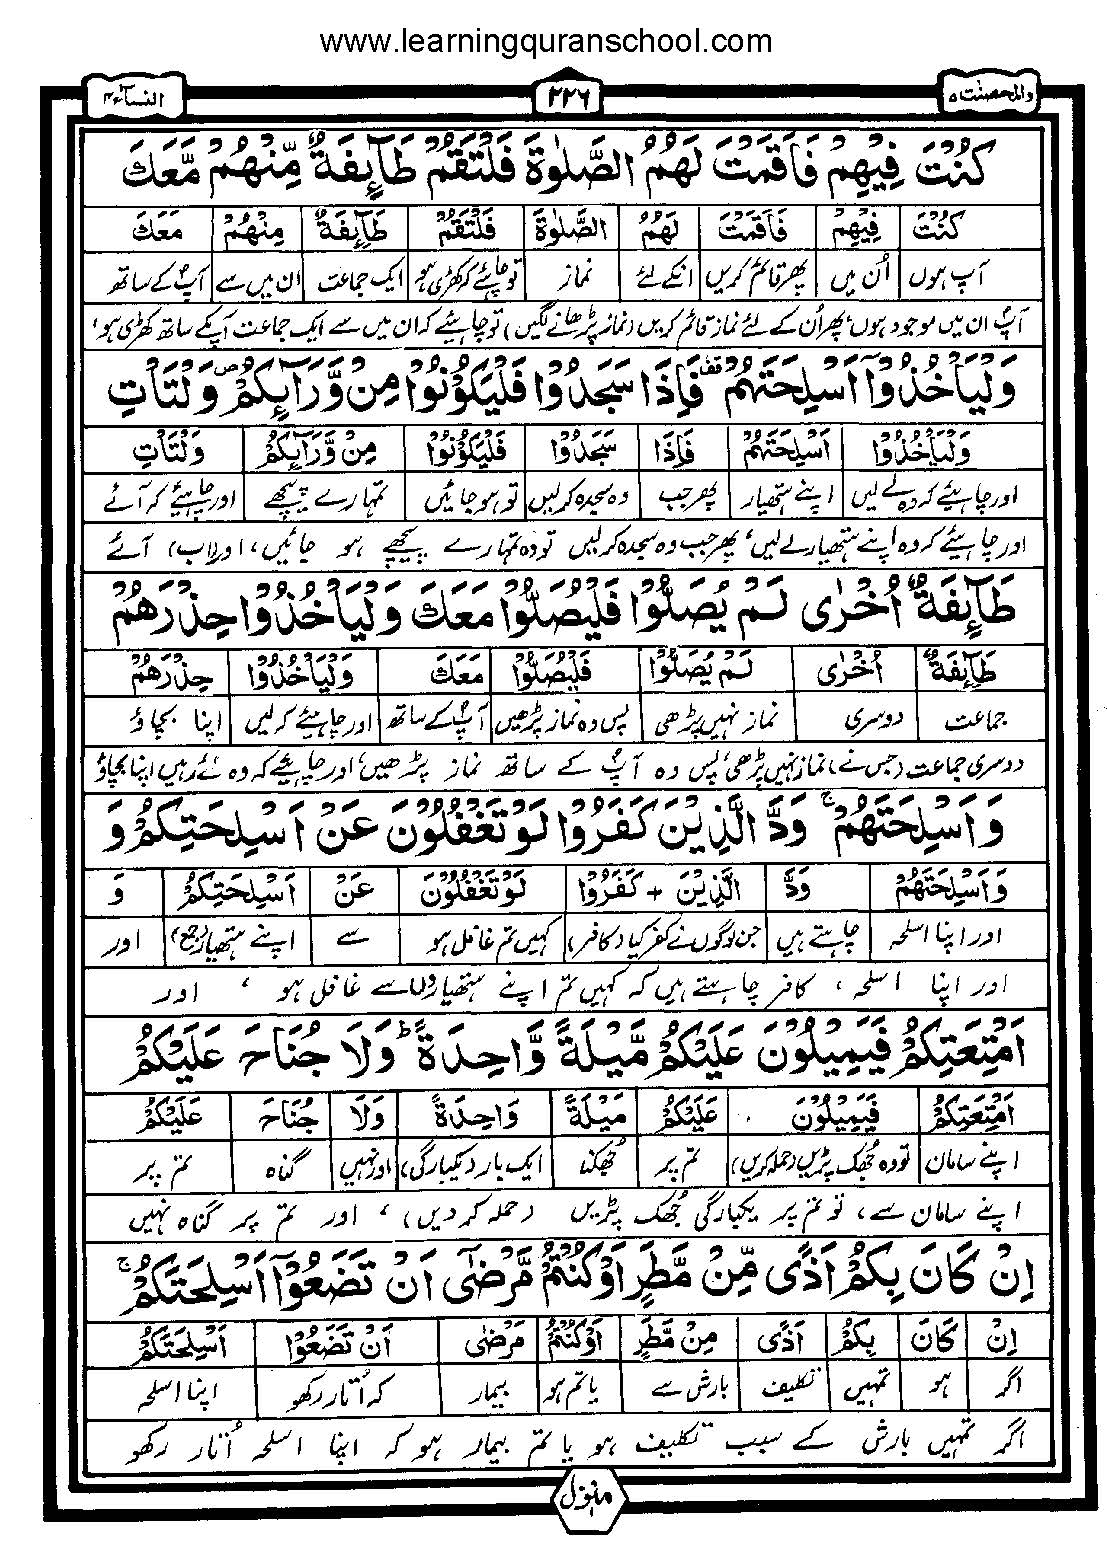 www.learningquranschool.com
والمحصنت ۵ ۲۲۶ النساء ۴
كُنْتَ فِيْهِمْ فَاَقَمْتَ لَهُمُ الصَّلٰوةَ فَلْتَقُمْ طَآىِٕفَةٌ مِّنْهُمْ مَّعَكَ
كُنْتَ فِيْهِمْ فَاَقَمْتَ لَهُمُ الصَّلٰوةَ فَلْتَقُمْ طَآىِٕفَةٌ مِنْهُمْ مَعَكَ
آپ ہوں اُن میں پھر قائم کریں انکے لئے نماز تو چاہئے کہ کھڑی ہو ایک جماعت ان میں سے آپؐ کے ساتھ
آپؐ ان میں موجود ہوں، پھر اُن کے لئے نماز قائم کریں (نماز پڑھانے لگیں) تو چاہیئے کہ ان میں سے ایک جماعت آپؐ کے ساتھ کھڑی ہو،
وَلْيَاْخُذُوْٓا اَسْلِحَتَهُمْ فَاِذَا سَجَدُوْا فَلْيَكُوْنُوْا مِنْ وَّرَآىِٕكُمْ وَلْتَاْتِ
وَلْيَاْخُذُوْا اَسْلِحَتَهُمْ فَاِذَا سَجَدُوْا فَلْيَكُوْنُوْا مِنْ وَّرَآىِٕكُمْ وَلْتَاْتِ
اور چاہیئے کہ وہ لے لیں اپنے ہتھیار پھر جب وہ سجدہ کرلیں تو ہو جائیں تمہارے پیچھے اور چاہیئے کہ آئے
اور چاہیئے کہ وہ اپنے ہتھیار لے لیں، پھر جب وہ سجدہ کرلیں تو وہ تمہارے پیچھے ہو جائیں، اور (اب) آئے
طَآىِٕفَةٌ اُخْرٰى لَمْ يُصَلُّوْا فَلْيُصَلُّوْا مَعَكَ وَلْيَاْخُذُوْا حِذْرَهُمْ
طَآىِٕفَةٌ اُخْرٰى لَمْ يُصَلُّوْا فَلْيُصَلُّوْا مَعَكَ وَلْيَاْخُذُوْا حِذْرَهُمْ
جماعت دوسری نماز نہیں پڑھی پس وہ نماز پڑھیں آپؐ کے ساتھ اور چاہیئے کہ لیں اپنا بچاؤ
دوسری جماعت (جس نے) نماز نہیں پڑھی، پس وہ آپؐ کے ساتھ نماز پڑھیں، اور چاہیئے کہ وہ لئے رہیں اپنا بچاؤ
وَاَسْلِحَتَهُمْ ۚ وَدَّ الَّذِيْنَ كَفَرُوْا لَوْ تَغْفُلُوْنَ عَنْ اَسْلِحَتِكُمْ وَ
وَاَسْلِحَتَهُمْ وَدَّ الَّذِيْنَ + كَفَرُوْا لَوْ تَغْفُلُوْنَ عَنْ اَسْلِحَتِكُمْ وَ
اور اپنا اسلحہ چاہتے ہیں جن لوگوں نے کفر کیا (کافر) کہیں تم غافل ہو سے اپنے ہتھیار (جمع) اور
اور اپنا اسلحہ، کافر چاہتے ہیں کہ کہیں تم اپنے ہتھیاروں سے غافل ہو، اور
اَمْتِعَتِكُمْ فَيَمِيْلُوْنَ عَلَيْكُمْ مَّيْلَةً وَّاحِدَةً ؕ وَلَا جُنَاحَ عَلَيْكُمْ
اَمْتِعَتِكُمْ فَيَمِيْلُوْنَ عَلَيْكُمْ مَيْلَةً وَاحِدَةً وَلَا جُنَاحَ عَلَيْكُمْ
اپنے سامان تو وہ جُھک پڑیں (حملہ کریں) تم پر جُھکنا ایک بار (یکبارگی) اور نہیں گناہ تم پر
اپنے سامان سے، تو تم پر یکبارگی جُھک پڑیں (حملہ کردیں)، اور تم پر گناہ نہیں
اِنْ كَانَ بِكُمْ اَذًى مِّنْ مَّطَرٍ اَوْ كُنْتُمْ مَّرْضٰٓى اَنْ تَضَعُوْٓا اَسْلِحَتَكُمْ ۚ
اِنْ كَانَ بِكُمْ اَذًى مِنْ مَّطَرٍ اَوْ كُنْتُمْ مَرْضٰى اَنْ تَضَعُوْا اَسْلِحَتَكُمْ
اگر ہو تمہیں تکلیف بارش سے یا تم ہو بیمار کہ اُتار رکھو اپنا اسلحہ
اگر تمہیں بارش کے سبب تکلیف ہو یا تم بیمار ہو کہ اپنا اسلحہ اُتار رکھو
منزل ۱